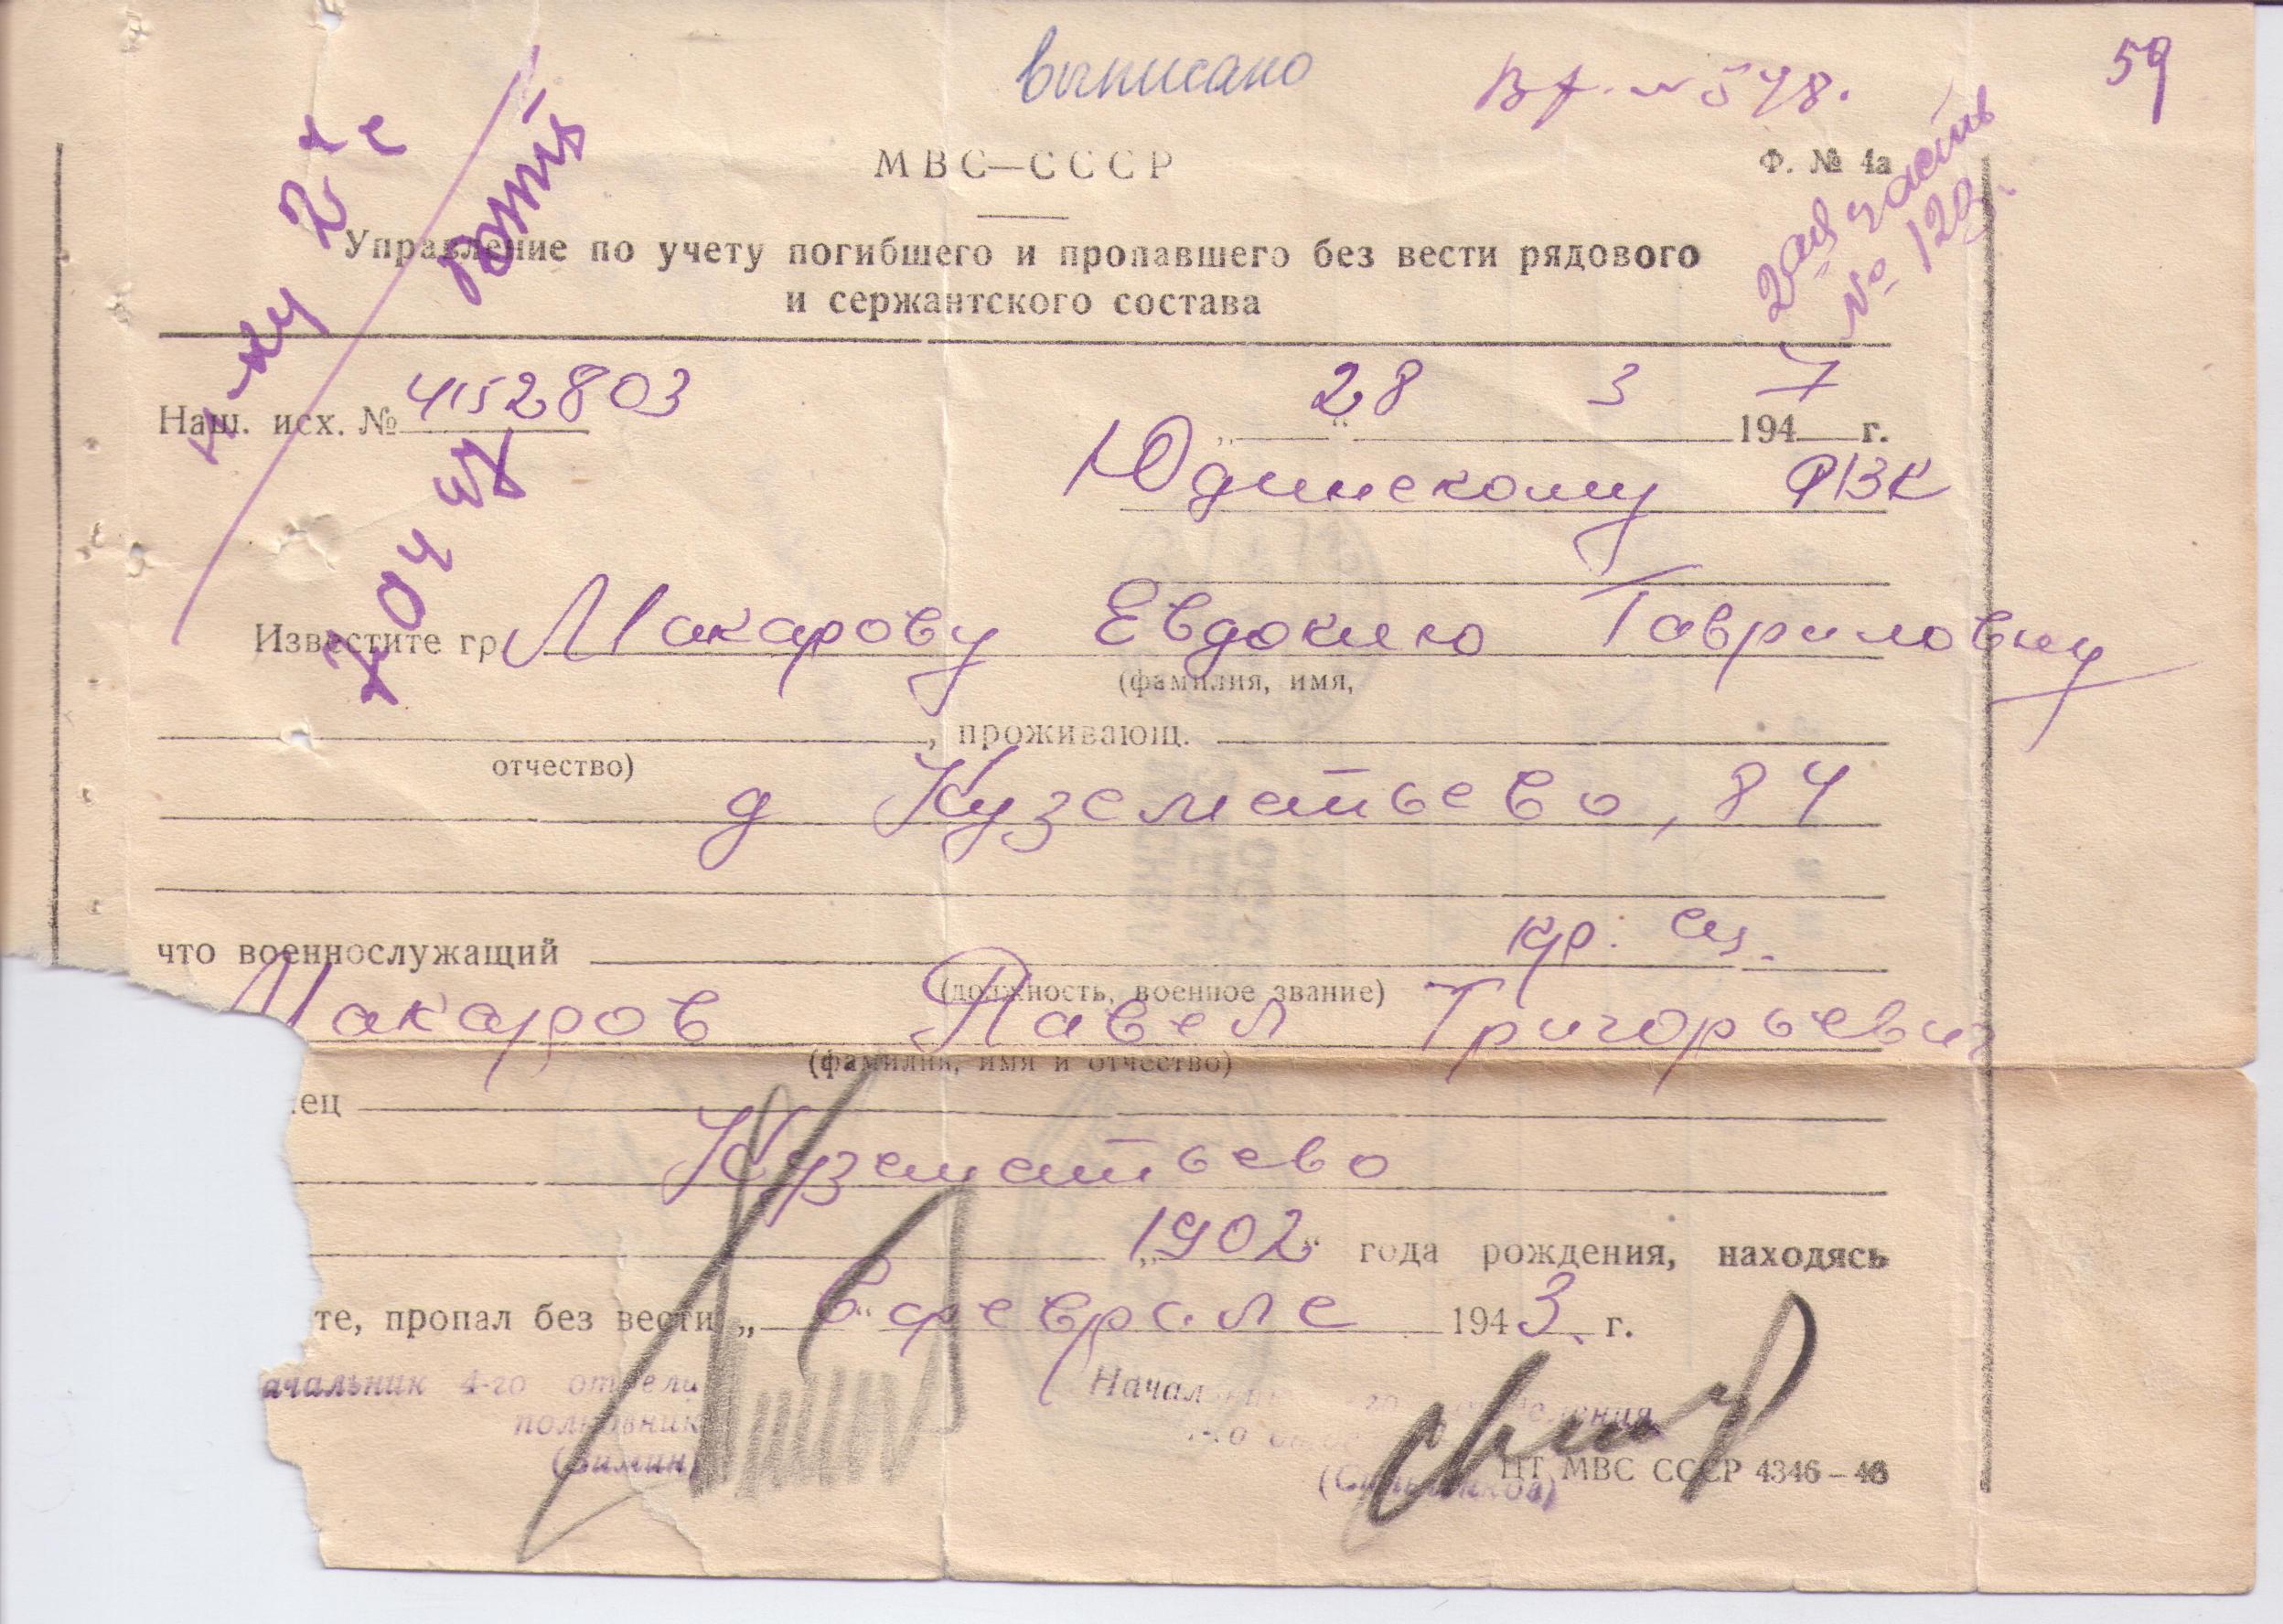 59
выписано
Вх. № 548.
МВС—СССР
Ф. № 4а
2ая часть
№ 120
Управление по учету погибшего и пропавшего без вести рядового
и сержантского состава
Наш. исх. № 4152803
„ 28 “ 3 1947 г.
Юдинскому РВК
Известите гр. Макарову Евдокию Гавриловну
(фамилия, имя,
, проживающ.
отчество)
д Куземетьево, 84
что военнослужащий кр-ец.
(должность, военное звание)
Макаров Павел Григорьевич
(фамилия, имя и отчество)
ец
Куземетьево
„ 1902 “ года рождения, находясь
те, пропал без вести „ в “ феврале 1943 г.
ачальник 4-го отдела
полковник
(Зимин)
Начальник го отделения
ЦТ МВС СССР 4346–46